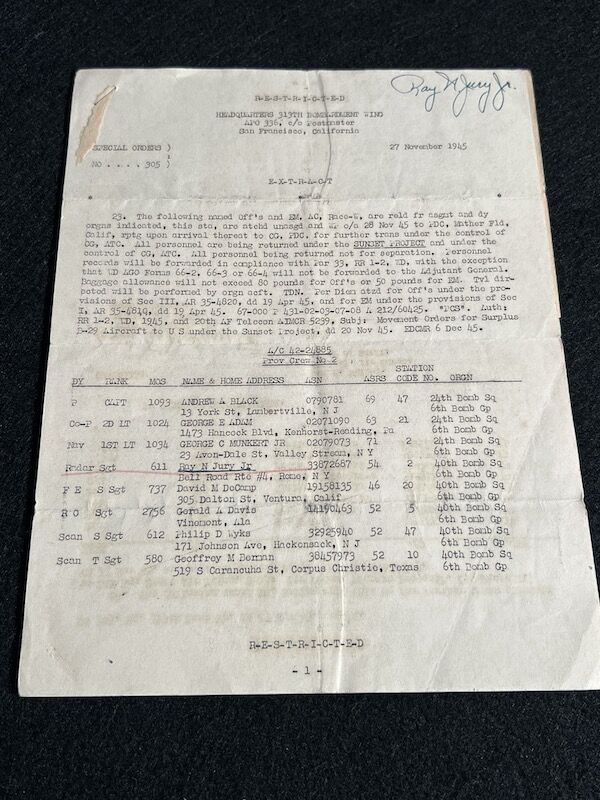 Ray N Jury Jr.
R-E-S-T-R-I-C-T-E-D
HEADQUARTERS 313TH BOMBARDMENT WING
APO 336, c/o Postmaster
San Francisco, California
SPECIAL ORDERS )
NO . . . . 305 )
27 November 1945
E-X-T-R-A-C-T
23. The following named Off's and EM, AC, Race-W, are reld fr asgmt and dy
orgns indicated, this sta, are atchd unasgd and WP o/a 28 Nov 45 to PDC, Mather Fld,
Calif, rptg upon arrival thereat to CG, PDC, for further trans under the control of
CG, ATC. All personnel are being returned under the SUNSET PROJECT and under the
control of CG, ATC. All personnel being returned not for separation. Personnel
records will be forwarded in compliance with Par 33, RR 1-2, WD, with the exception
that WD AGO Forms 66-2, 66-3 or 66-4 will not be forwarded to the Adjutant General.
Baggage allowance will not exceed 80 pounds for Off's or 50 pounds for EM. Tvl dir-
ected will be performed by orgn acft. TDN. Per Diem atzd for Off's under the pro-
visions of Sec III, AR 35-4820, dd 19 Apr 45, and for EM under the provisions of Sec
I, AR 35-4810, dd 19 Apr 45. 67-000 P 431-02-03-07-08 A 212/60425. "PCS". Auth:
RR 1-2, WD, 1945, and 20th AF Telecon AIMCR 5239, Subj: Movement Orders for Surplus
B-29 Aircraft to U S under the Sunset Project, dd 20 Nov 45. EDCMR 6 Dec 45.
A/C 42-24885
Prov Crew No 2
DY RANK MOS NAME & HOME ADDRESS ASN ASRS STATION CODE NO. ORGN
P CAPT 1093 ANDREW A BLACK 0790781 69 47 24th Bomb Sq
13 York St, Lambertville, N J 6th Bomb Gp
Co-P 2D LT 1024 GEORGE E ADAM 02071090 63 21 24th Bomb Sq
1473 Hancock Blvd, Kenhorst-Reading, Pa 6th Bomb Gp
Nav 1ST LT 1034 GEORGE C MUNKERT JR 02079073 71 2 24th Bomb Sq
23 Avon-Dale St, Valley Stream, N Y 6th Bomb Gp
Radar Sgt 611 Ray N Jury Jr 33872687 54 2 40th Bomb Sq
Bell Road Rte #4, Rome, N Y 6th Bomb Gp
F E S Sgt 737 David M DeComp 19158135 46 20 40th Bomb Sq
305 Dalton St, Ventura, Calif 6th Bomb Gp
R O Sgt 2756 Gerald A Davis 14190463 52 5 40th Bomb Sq
Vinemont, Ala 6th Bomb Gp
Scan S Sgt 612 Philip D Wyks 32925940 52 47 40th Bomb Sq
171 Johnson Ave, Hackensack, N J 6th Bomb Gp
Scan T Sgt 580 Geoffrey M Berman 38457973 52 10 40th Bomb Sq
519 S Carancuha St, Corpus Christie, Texas 6th Bomb Gp
R-E-S-T-R-I-C-T-E-D
- 1 -